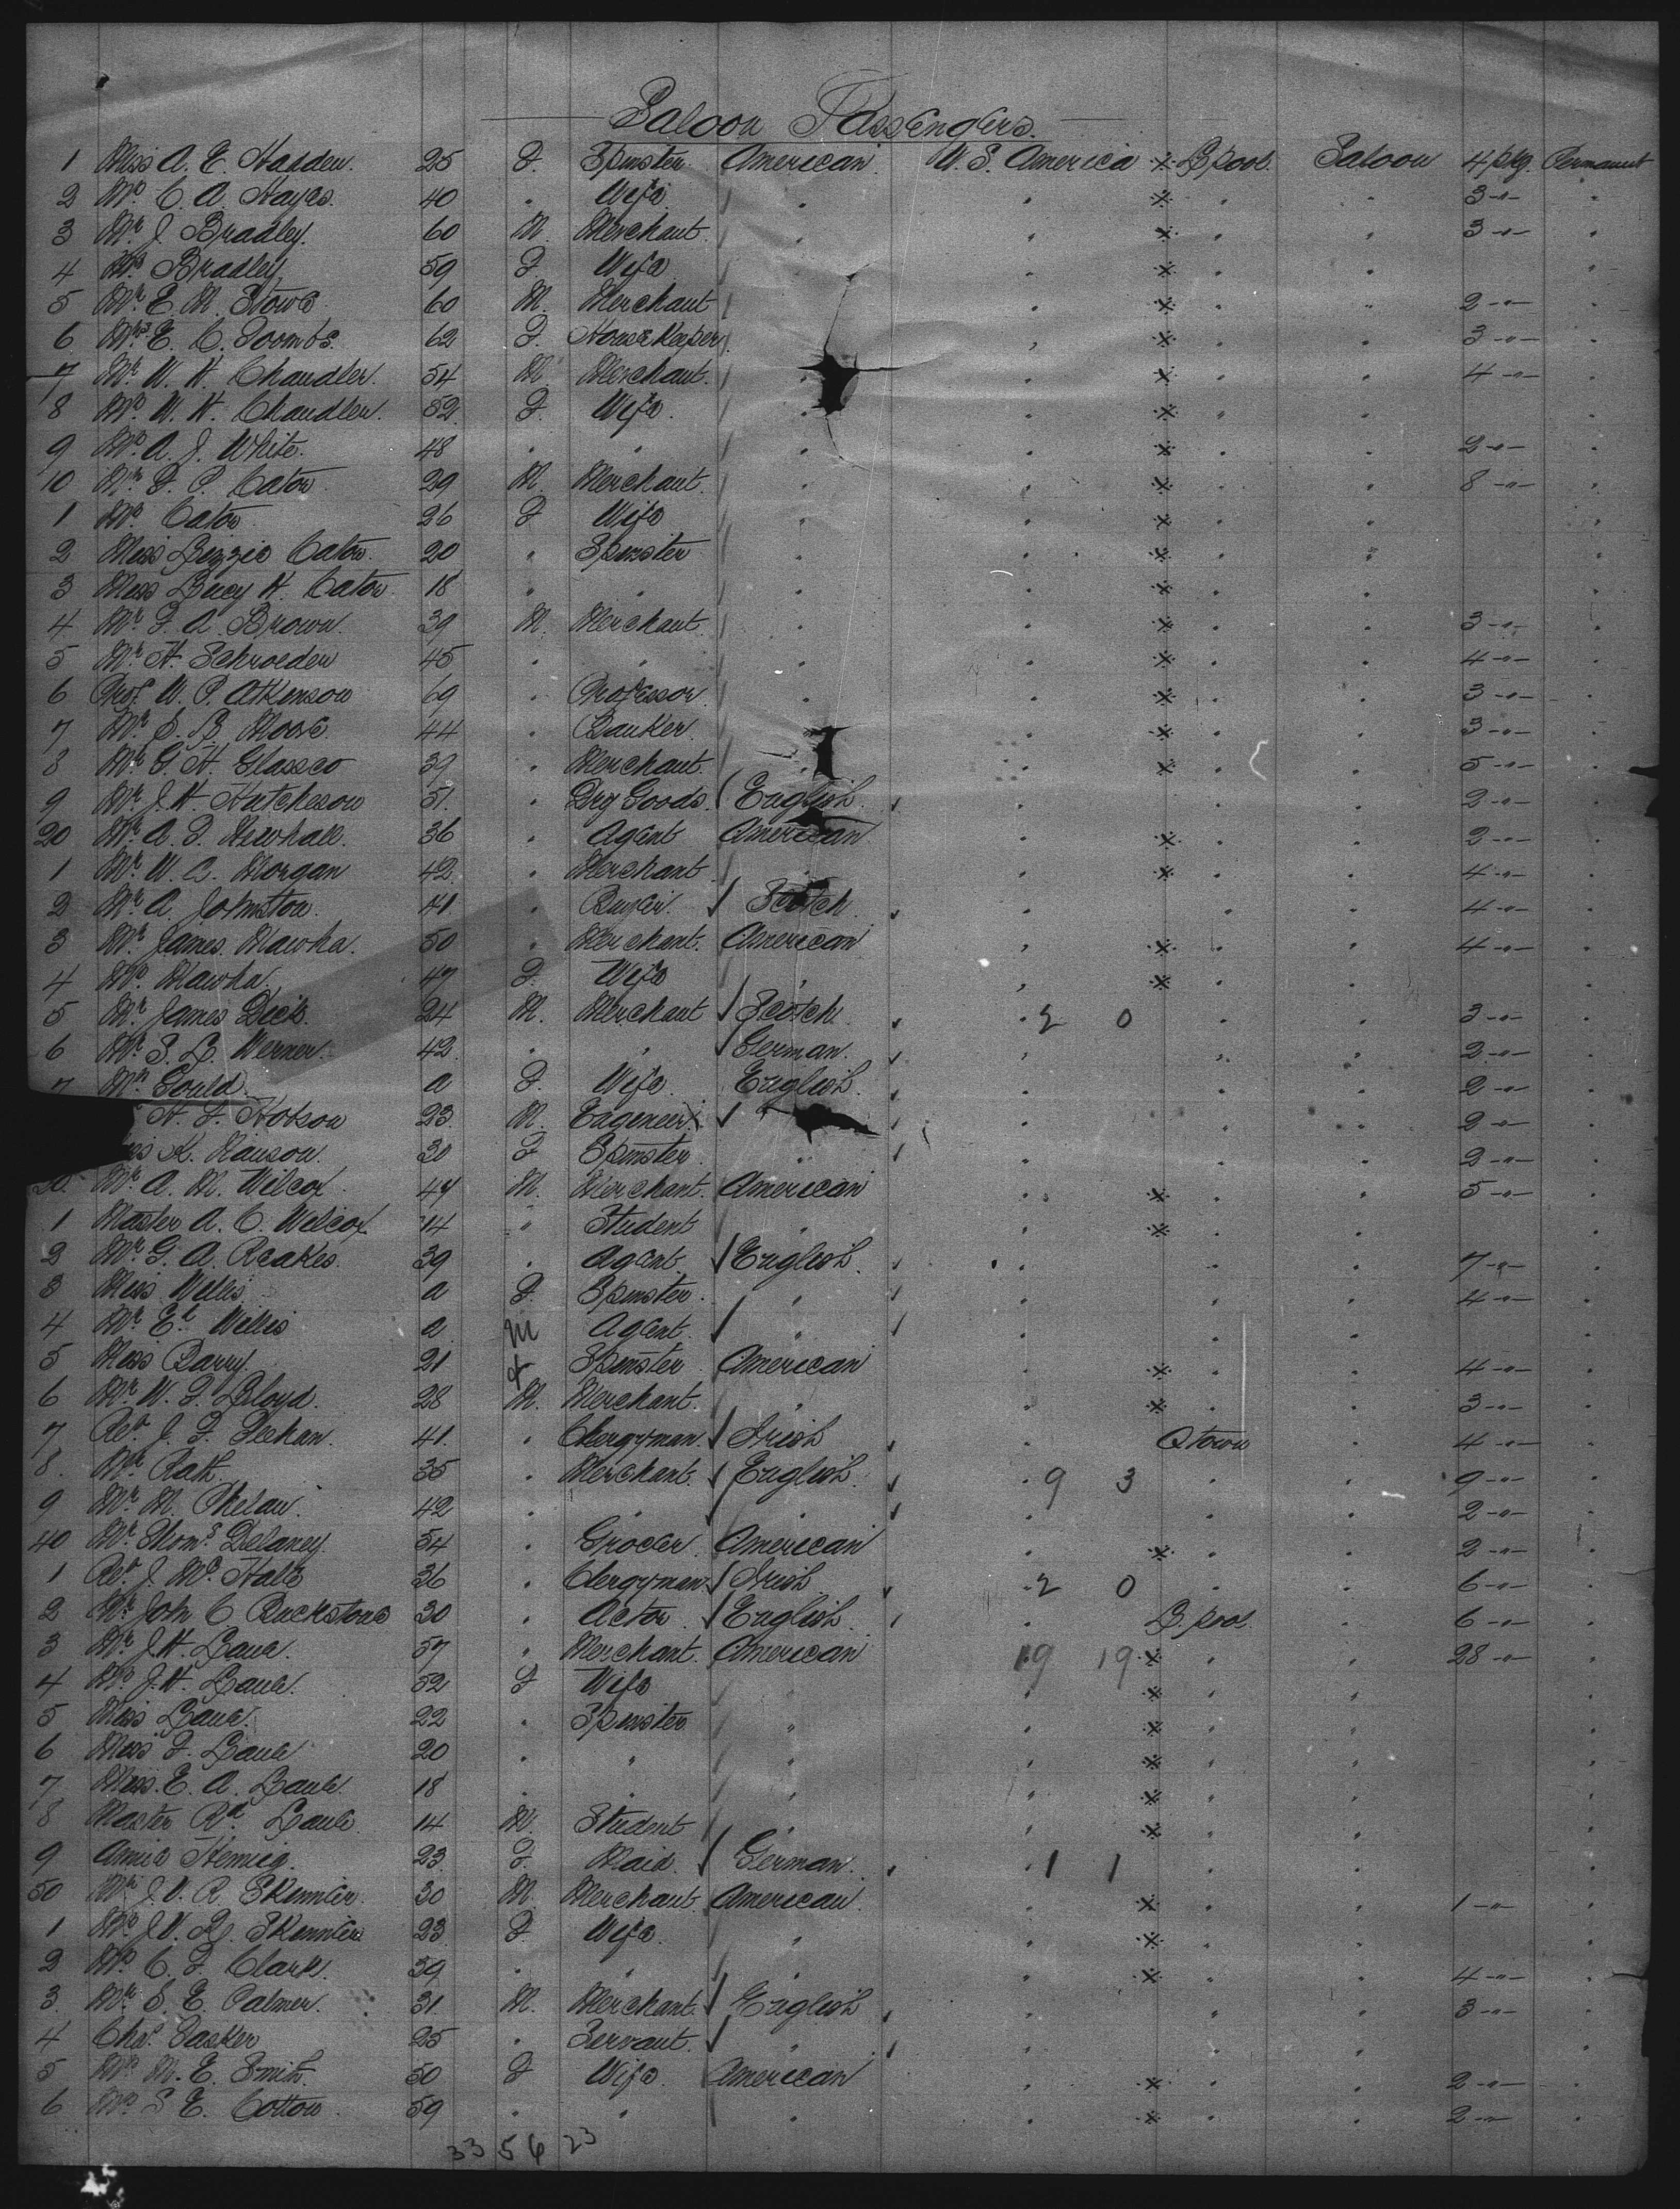 Saloon Passengers.
1 Miss A. E. Hadden. 25 F. Spinster American U. S. America × L'pool. Saloon 4 pkg. Permanent
2 Mrs C. A. Hayes. 40 " Wife " " × " " 3 -"- "
3 Mr J. Bradley. 60 M. Merchant. " " × " " 3 -"- "
4 Mrs Bradley. 59 F. Wife " " × " " "
5 Mr E. M. Stowe 60 M. Merchant " " × " " 2 -"- "
6 Mrs E. C. Toombs. 62 F. Housekeeper " " × " " 3 -"- "
7 Mr W. H. Chandler. 54 M. Merchant. " " × " " 4 -"- "
8 Mrs W. H. Chandler. 52 F. Wife. " " × " " "
9 Mrs A. J. White. 48 " " " " × " " 2 -"- "
10 Mr F. P. Cator 29 M. Merchant. " " × " " 8 -"- "
1 Mrs Cator 26 F Wife " " × " " "
2 Miss Lizzie Cator. 20 " Spinster " " × " " "
3 Miss Lucy H. Cator. 18 " " " " × " " "
4 Mr F. A. Brown. 39 M. Merchant. " " × " " 3 -"- "
5 Mr H. Schroeder 45 " " " " × " " 4 -"- "
6 Prof. W. P. Atkinson 69 " Professor. " " × " " 3 -"- "
7 Mr S. B. Moore 44 " Banker. " " × " " 3 -"- "
8 Mr G. H. Glassco 39 " Merchant. " " × " " 5 -"- "
9 Mr J. H. Hutcheson 51. " Dry Goods. English. " " " 2 -"- "
20 Mr A. F. Newhall. 36 " Agent American " × " " 2 -"- "
1 Mr W. C. Morgan 42 " Merchant " " × " " 4 -"- "
2 Mr A. Johnston. 41. " Scotch. " " " 4 -"- "
3 Mr James. Mawha. 50 " Merchant. American " × " " 4 -"- "
4 Mrs Mawha. 47 F. Wife " " × " "
5 Mr James Dick. 24 M. Merchant Scotch. " 2 0 " " 3 -"- "
6 Mr S. L. Werner. 42. " " German. " " " 2 -"- "
7 Mrs Gould. a F. Wife English. " " " 2 -"- "
H. F. Hobson 23. M. Engeneer " " " " 2 -"- "
K. Hanson. 30 F Spinster. " " " " 2 -"- "
30. Mr A. M. Wilcox 47 M. Merchant. American " × " " 5 -"- "
1 Master A. C. Wilcox 14 " Student " " × " " "
2 Mr G. A. Reakes. 39 " Agent. English. " " " 7 -"- "
3 Miss Willis. a F. Spinster. " " " " 4 -"- "
4 Mr Ed Willis a M Agent. " " " " "
5 Miss Barry. 21 F Spinster American " × " " 4 -"- "
6 Mr W. F. Lloyd. 28 M. Merchant. " " × " " 3 -"- "
7 Rev. J. F. Leehan. 41. " Clergyman. Irish " Q'town " 4 -"- "
8. Mr Rath. 35 " Merchant. English. " 9 3 " " 9 -"- "
9 Mr M. Phelan. 42 " " " " " " 2 -"- "
40 Mr Thoms Delaney. 54 " Grocer. American " × " " 2 -"- "
1 Rev J. Mc Hale 36 " Clergyman. Irish " 2 0 " " 6 -"- "
2 Mr John C Buckstone 30 " Actor. English. " L'pool. " 6 -"- "
3 Mr J. H. Lane. 57 " Merchant. American 19 19 × " " 28 -"- "
4 Mrs J. H. Lane. 52 F Wife " " × " " "
5 Miss Lane. 22 " Spinster " " × " " "
6 Miss F. Lane 20 " " " " × " " "
7 Miss. E. A. Lane. 18 " " " " × " " "
8 Master Rd Lane 14 M. Student " " × " " "
9 23. F. Maid. German. " 1 1 " " "
50 Mr J. V. R. Skinner. 30 M. Merchant American. " × " " 1 -"- "
1 Mrs J. V. R. Skinner 23 F. Wife. " " × " " "
2 Mrs C. F. Clark. 39 " " " " × " " 4 -"- "
3. Mr S. E. Palmer. 31. M. Merchant. English. " " " 3 -"- "
4 Chas. Tasker 25 " Servant. " " " " "
5 Mrs M. E. Smith. 50 F Wife. American " × " " 2 -"- "
6 Mrs S E. Cotton. 59 " " " " × " " 2 -"- "
33 56 23